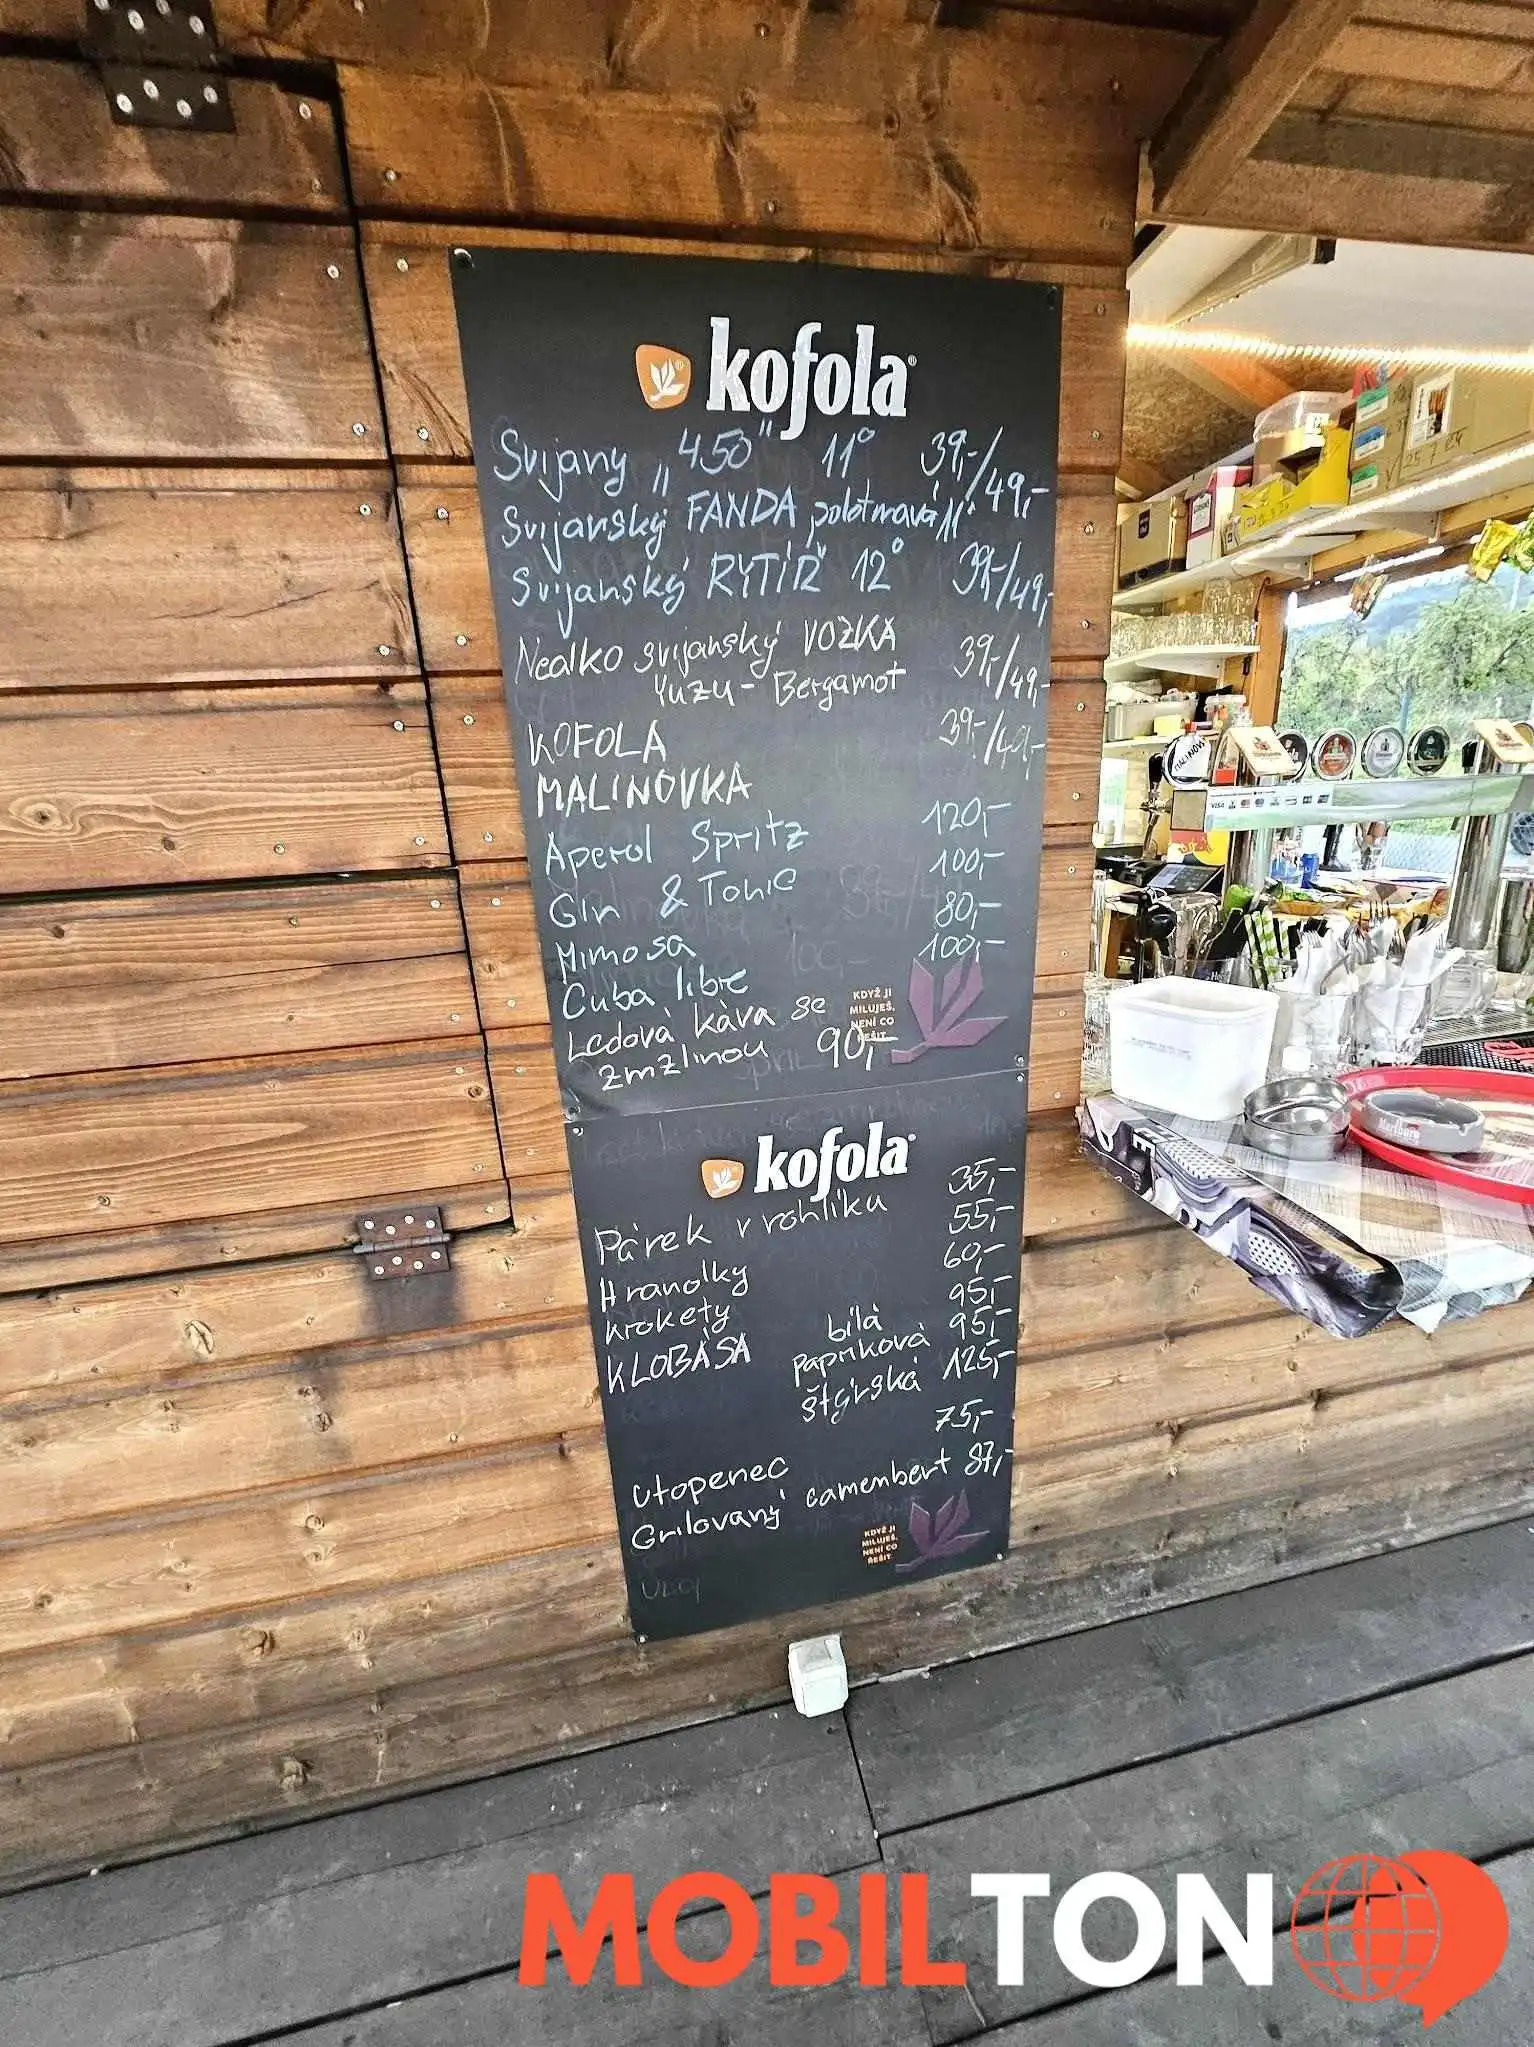 kofola
Svijany „450" 11° 39,-/49,-
Svijanský FANDA polotmavá 11°
Svijanský RYTÍŘ 12° 39,-/49,-
Nealko svijanský VOZKA 39,-/49,-
Yuzu - Bergamot
KOFOLA 39,-/49,-
MALINOVKA
Aperol Spritz 120,-
Gin & Tonic 100,-
Mimosa 80,-
Cuba libre 100,-
Ledová káva se
zmzlinou 90,-
KDYŽ JI
MILUJEŠ,
NENÍ CO
ŘEŠIT.
kofola
Párek v rohlíku 35,-
Hranolky 55,-
Krokety 60,-
KLOBÁSA bílá 95,-
papriková 95,-
štýrská 125,-
Utopenec 75,-
Grilovaný camembert 87,-
KDYŽ JI
MILUJEŠ,
NENÍ CO
ŘEŠIT.
VISA
Marlboro
MOBILTON